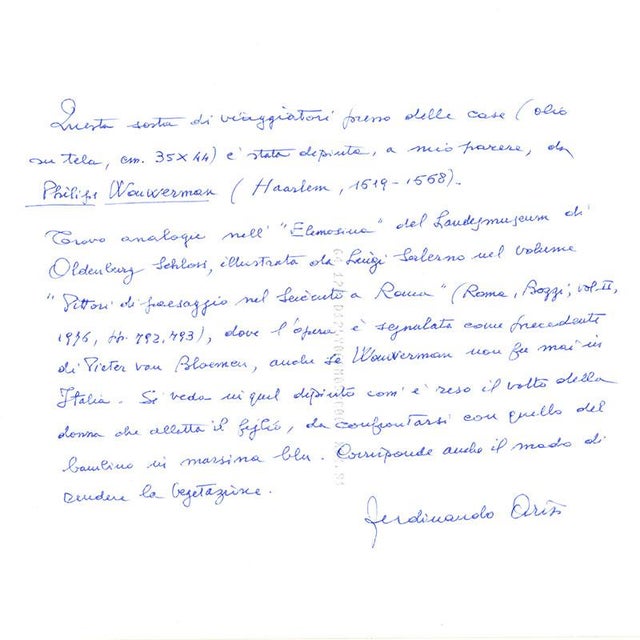 Questa sosta di viaggiatori presso delle case (olio
su tela, cm. 35x44) è stata depinta, a mio parere, da
Philips Wouverman (Haarlem, 1619-1668).
Trovo analogie nell'"Elemosina" del Landesmuseum di
Oldenburg Schloss, illustrata da Luigi Salerno nel volume
"Pittori di paesaggio nel Seicento a Roma" (Roma, Bozzi, vol. II,
1976, pp. 792.793), dove l'opera è segnalata come precedente
di Pieter van Bloemen, anche se Wouverman non fu mai in
Italia. Si veda in quel depinto com'è reso il volto della
donna che allatta il figlio, da confrontarsi con quello del
bambino in marsina blu. Corrisponde anche il modo di
rendere la vegetazione.
Ferdinando Arisi